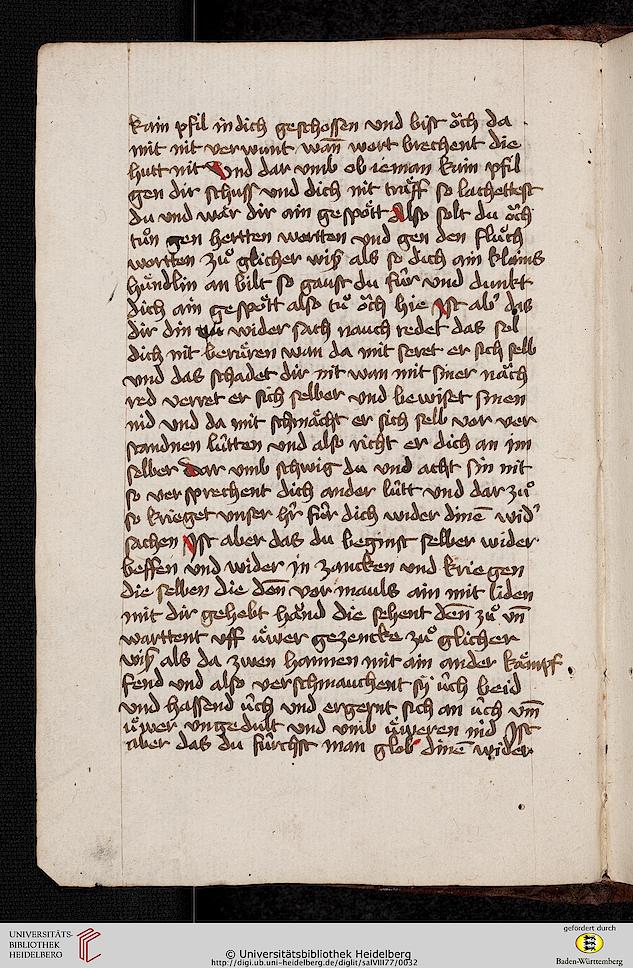 kain pfil in dich geschossen vnd bist o̊ch da
mit nit verwunt wan̄ wort brechent die
hutt nit Vnd dar vmb ob ieman kain pfil
gen dir schuss vnd dich nit träff so lachettest
du vnd wär dir ain gespött Also solt du o̊ch
tůn gen hertten wortten vnd gen den flůch
wortten zů glicher wiß als so dich ain klains
hündlin an bilt so gaust du für vnd dunkt
dich ain gespött also tů o̊ch hie Ist ab' das
dir din wider sach nauch redet das sol
dich nit berüren wan da mit seret er sich selb
vnd das schadet dir nit wan mit siner näch
red verret er sich selber vnd bewiset sinen
nid vnd da mit schmächt er sich selb vor ver
standnen lütten vnd also richt er dich an im
selber dar vmb schwig du vnd acht sin nit
so versprechent dich ander lütt vnd dar zů
so krieget vnser h'r für dich wider dinē wid'
sachen Ist aber das du beginst selber wider
beffen vnd wider in zancken vnd kriegen
die selben die den̄ vor mauls ain mit liden
mit dir gehebt händ die sehent den̄ zů vn̄
warttent vff üwer gezencke zů glicher
wiß als da zwen hannen mit ain ander kämpf
fend vnd also verschmauchent sy üch beid
vnd hassend üch vnd ergernt sich an üch vm̄
üwer vngedult vnd vmb üweren nid Ist
aber das du fürchst man glob dinē wider
UNIVERSITÄTS-
BIBLIOTHEK
HEIDELBERG
© Universitätsbibliothek Heidelberg
http://digi.ub.uni-heidelberg.de/diglit/salVIII77/0032
gefördert durch
Baden-Württemberg